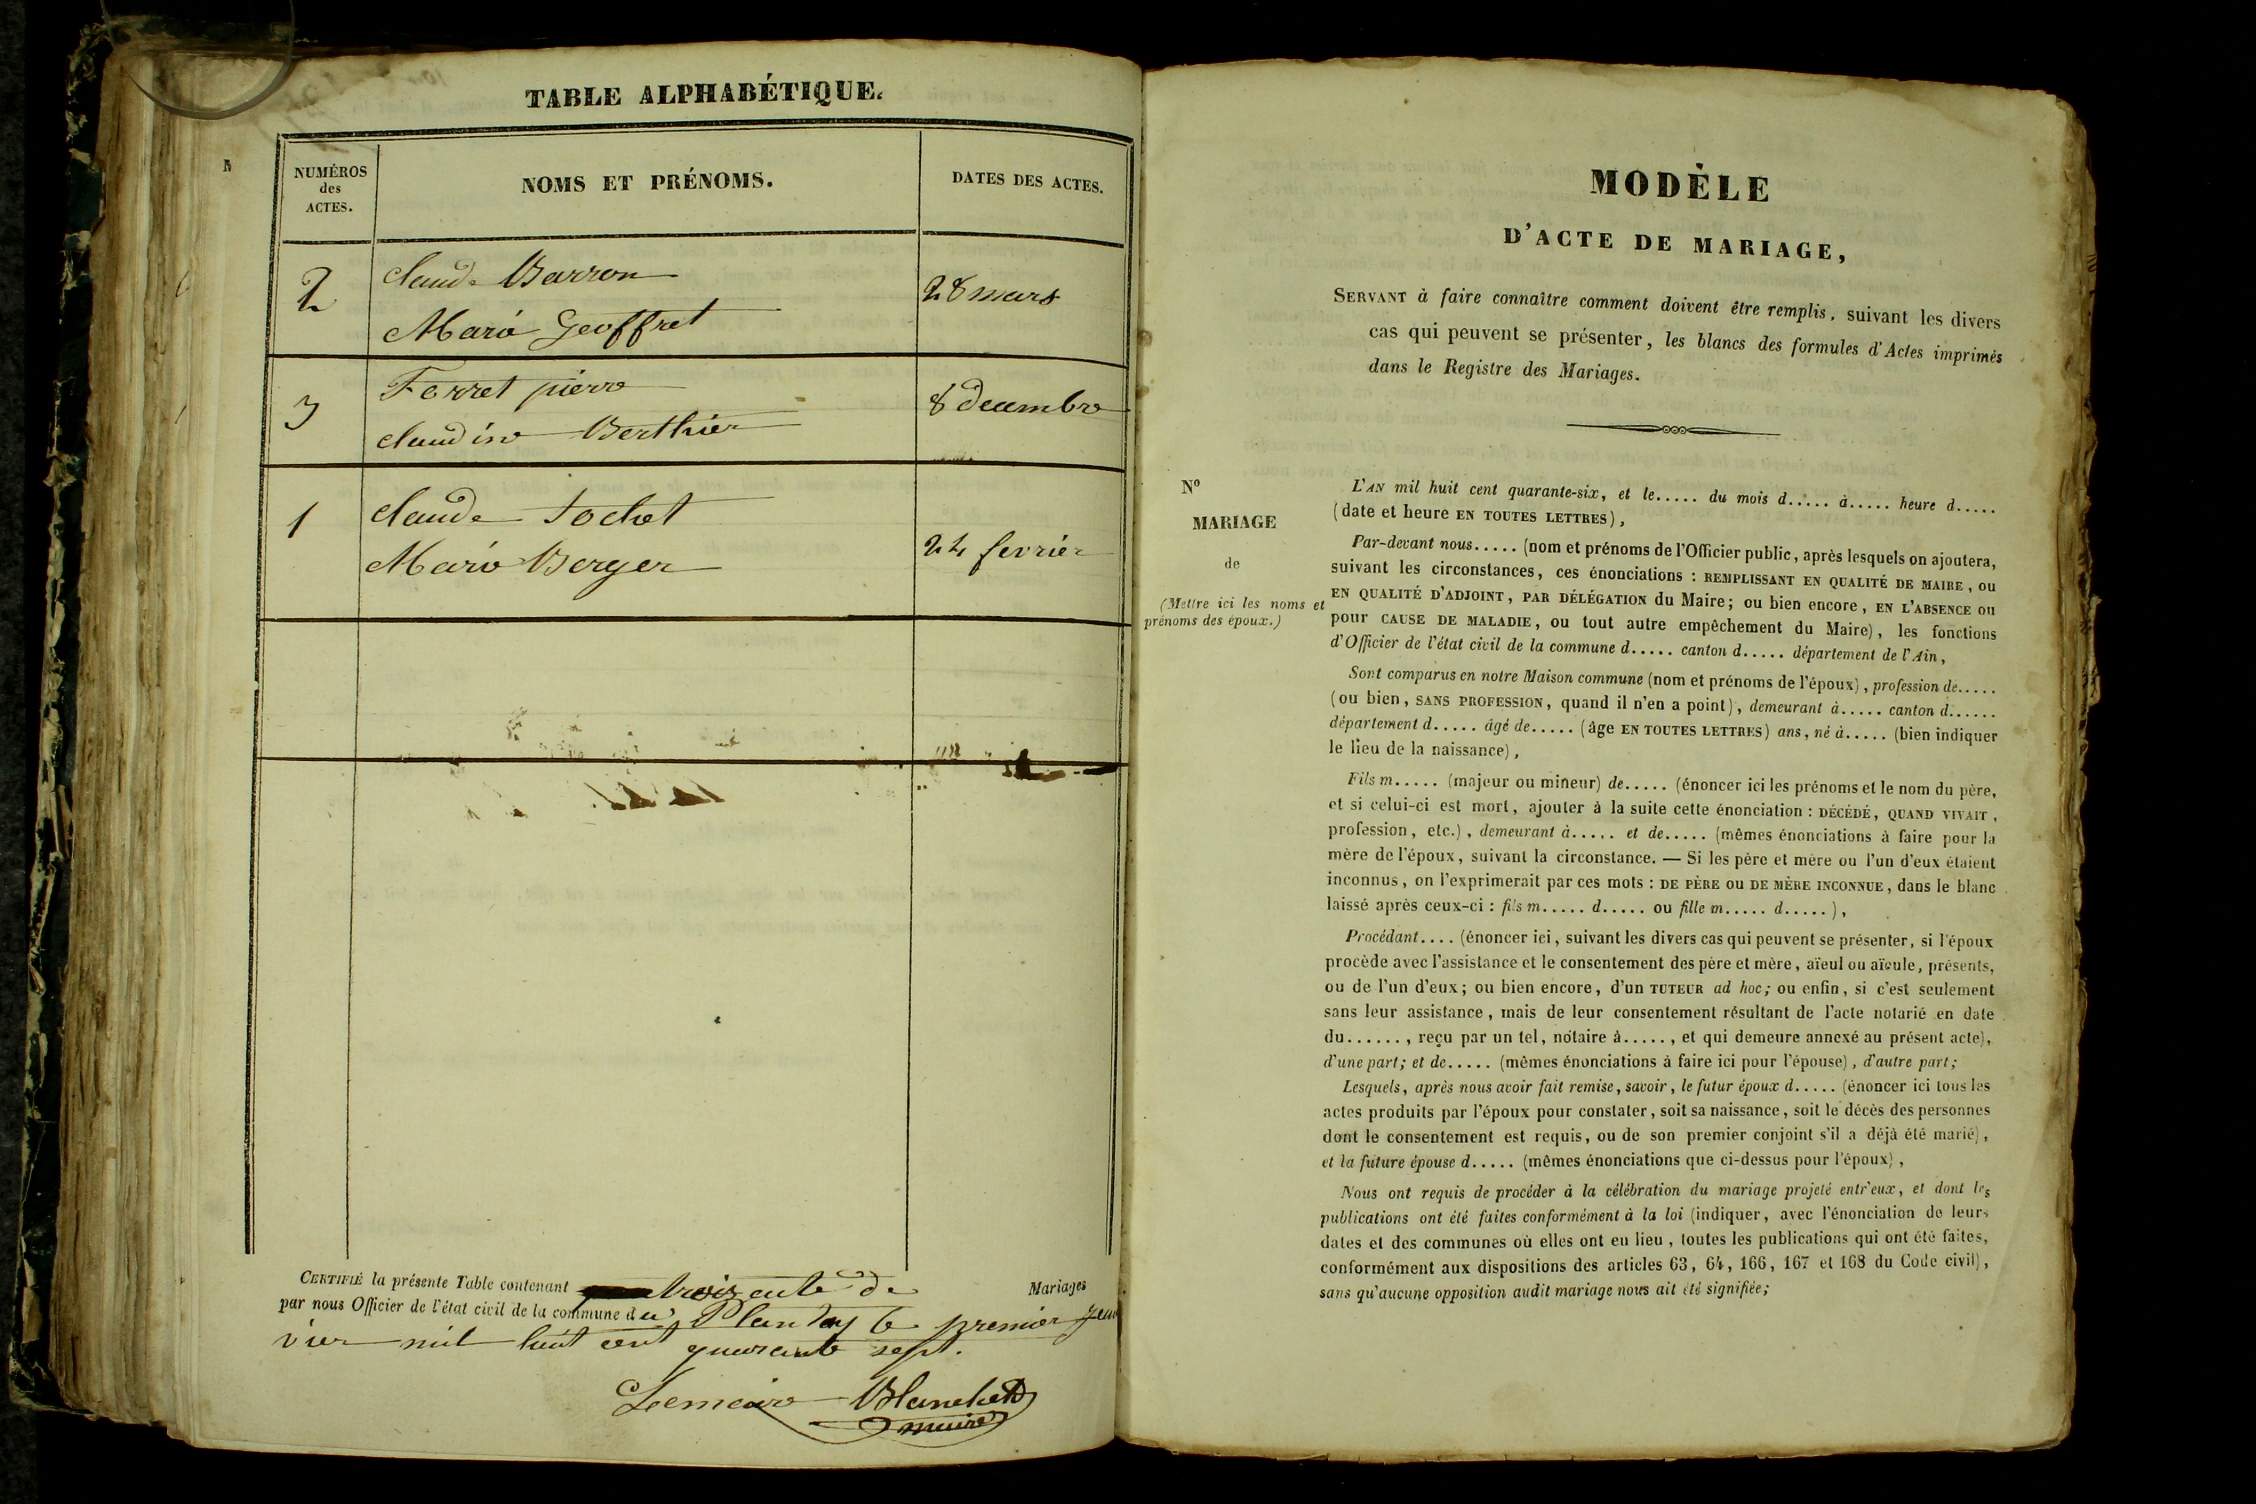 TABLE ALPHABÉTIQUE.
NUMÉROS
des
ACTES.
NOMS ET PRÉNOMS.
DATES DES ACTES.
2
Claude Barron
Marie Geoffret
28 mars
3
Ferret pierre
claudine Berthier
8 decembre
1
claude Jochet
Marie Berger
24 fevrier
CERTIFIÉ la présente Table contenant trois acte de Mariages
par nous Officier de l'état civil de la commune du Plantay le premier Jan
vier mil huit cent quarante sept.
Le maire Blanchet
maire
MODÈLE
D'ACTE DE MARIAGE,
SERVANT à faire connaître comment doivent être remplis, suivant les divers
cas qui peuvent se présenter, les blancs des formules d'Actes imprimés
dans le Registre des Mariages.
Nº
MARIAGE
de
(Mettre ici les noms et
prénoms des époux.)
L'AN mil huit cent quarante-six, et le..... du mois d..... à..... heure d.....
(date et heure EN TOUTES LETTRES),
Par-devant nous..... (nom et prénoms de l'Officier public, après lesquels on ajoutera,
suivant les circonstances, ces énonciations : REMPLISSANT EN QUALITÉ DE MAIRE, OU
EN QUALITÉ D'ADJOINT, PAR DÉLÉGATION du Maire; ou bien encore, EN L'ABSENCE OU
pour CAUSE DE MALADIE, ou tout autre empêchement du Maire), les fonctions
d'Officier de l'état civil de la commune d..... canton d..... département de l'Ain,
Sont comparus en notre Maison commune (nom et prénoms de l'époux), profession de.....
(ou bien, SANS PROFESSION, quand il n'en a point), demeurant à..... canton d......
département d..... âgé de..... (âge EN TOUTES LETTRES) ans, né à..... (bien indiquer
le lieu de la naissance),
Fils m..... (majeur ou mineur) de..... (énoncer ici les prénoms et le nom du père,
et si celui-ci est mort, ajouter à la suite cette énonciation : DÉCÉDÉ, QUAND VIVAIT,
profession, etc.), demeurant à..... et de..... (mêmes énonciations à faire pour la
mère de l'époux, suivant la circonstance. — Si les père et mère ou l'un d'eux étaient
inconnus, on l'exprimerait par ces mots : DE PÈRE OU DE MÈRE INCONNUE, dans le blanc
laissé après ceux-ci : fils m..... d..... ou fille m..... d.....),
Procédant.... (énoncer ici, suivant les divers cas qui peuvent se présenter, si l'époux
procède avec l'assistance et le consentement des père et mère, aïeul ou aïeule, présents,
ou de l'un d'eux; ou bien encore, d'un TUTEUR ad hoc; ou enfin, si c'est seulement
sans leur assistance, mais de leur consentement résultant de l'acte notarié en date
du......, reçu par un tel, notaire à....., et qui demeure annexé au présent acte),
d'une part; et de..... (mêmes énonciations à faire ici pour l'épouse), d'autre part;
Lesquels, après nous avoir fait remise, savoir, le futur époux d..... (énoncer ici tous les
actes produits par l'époux pour constater, soit sa naissance, soit le décès des personnes
dont le consentement est requis, ou de son premier conjoint s'il a déjà été marié),
et la future épouse d..... (mêmes énonciations que ci-dessus pour l'époux),
Nous ont requis de procéder à la célébration du mariage projeté entr'eux, et dont les
publications ont été faites conformément à la loi (indiquer, avec l'énonciation de leurs
dates et des communes où elles ont eu lieu, toutes les publications qui ont été faites,
conformément aux dispositions des articles 63, 64, 166, 167 et 168 du Code civil),
sans qu'aucune opposition audit mariage nous ait été signifiée;